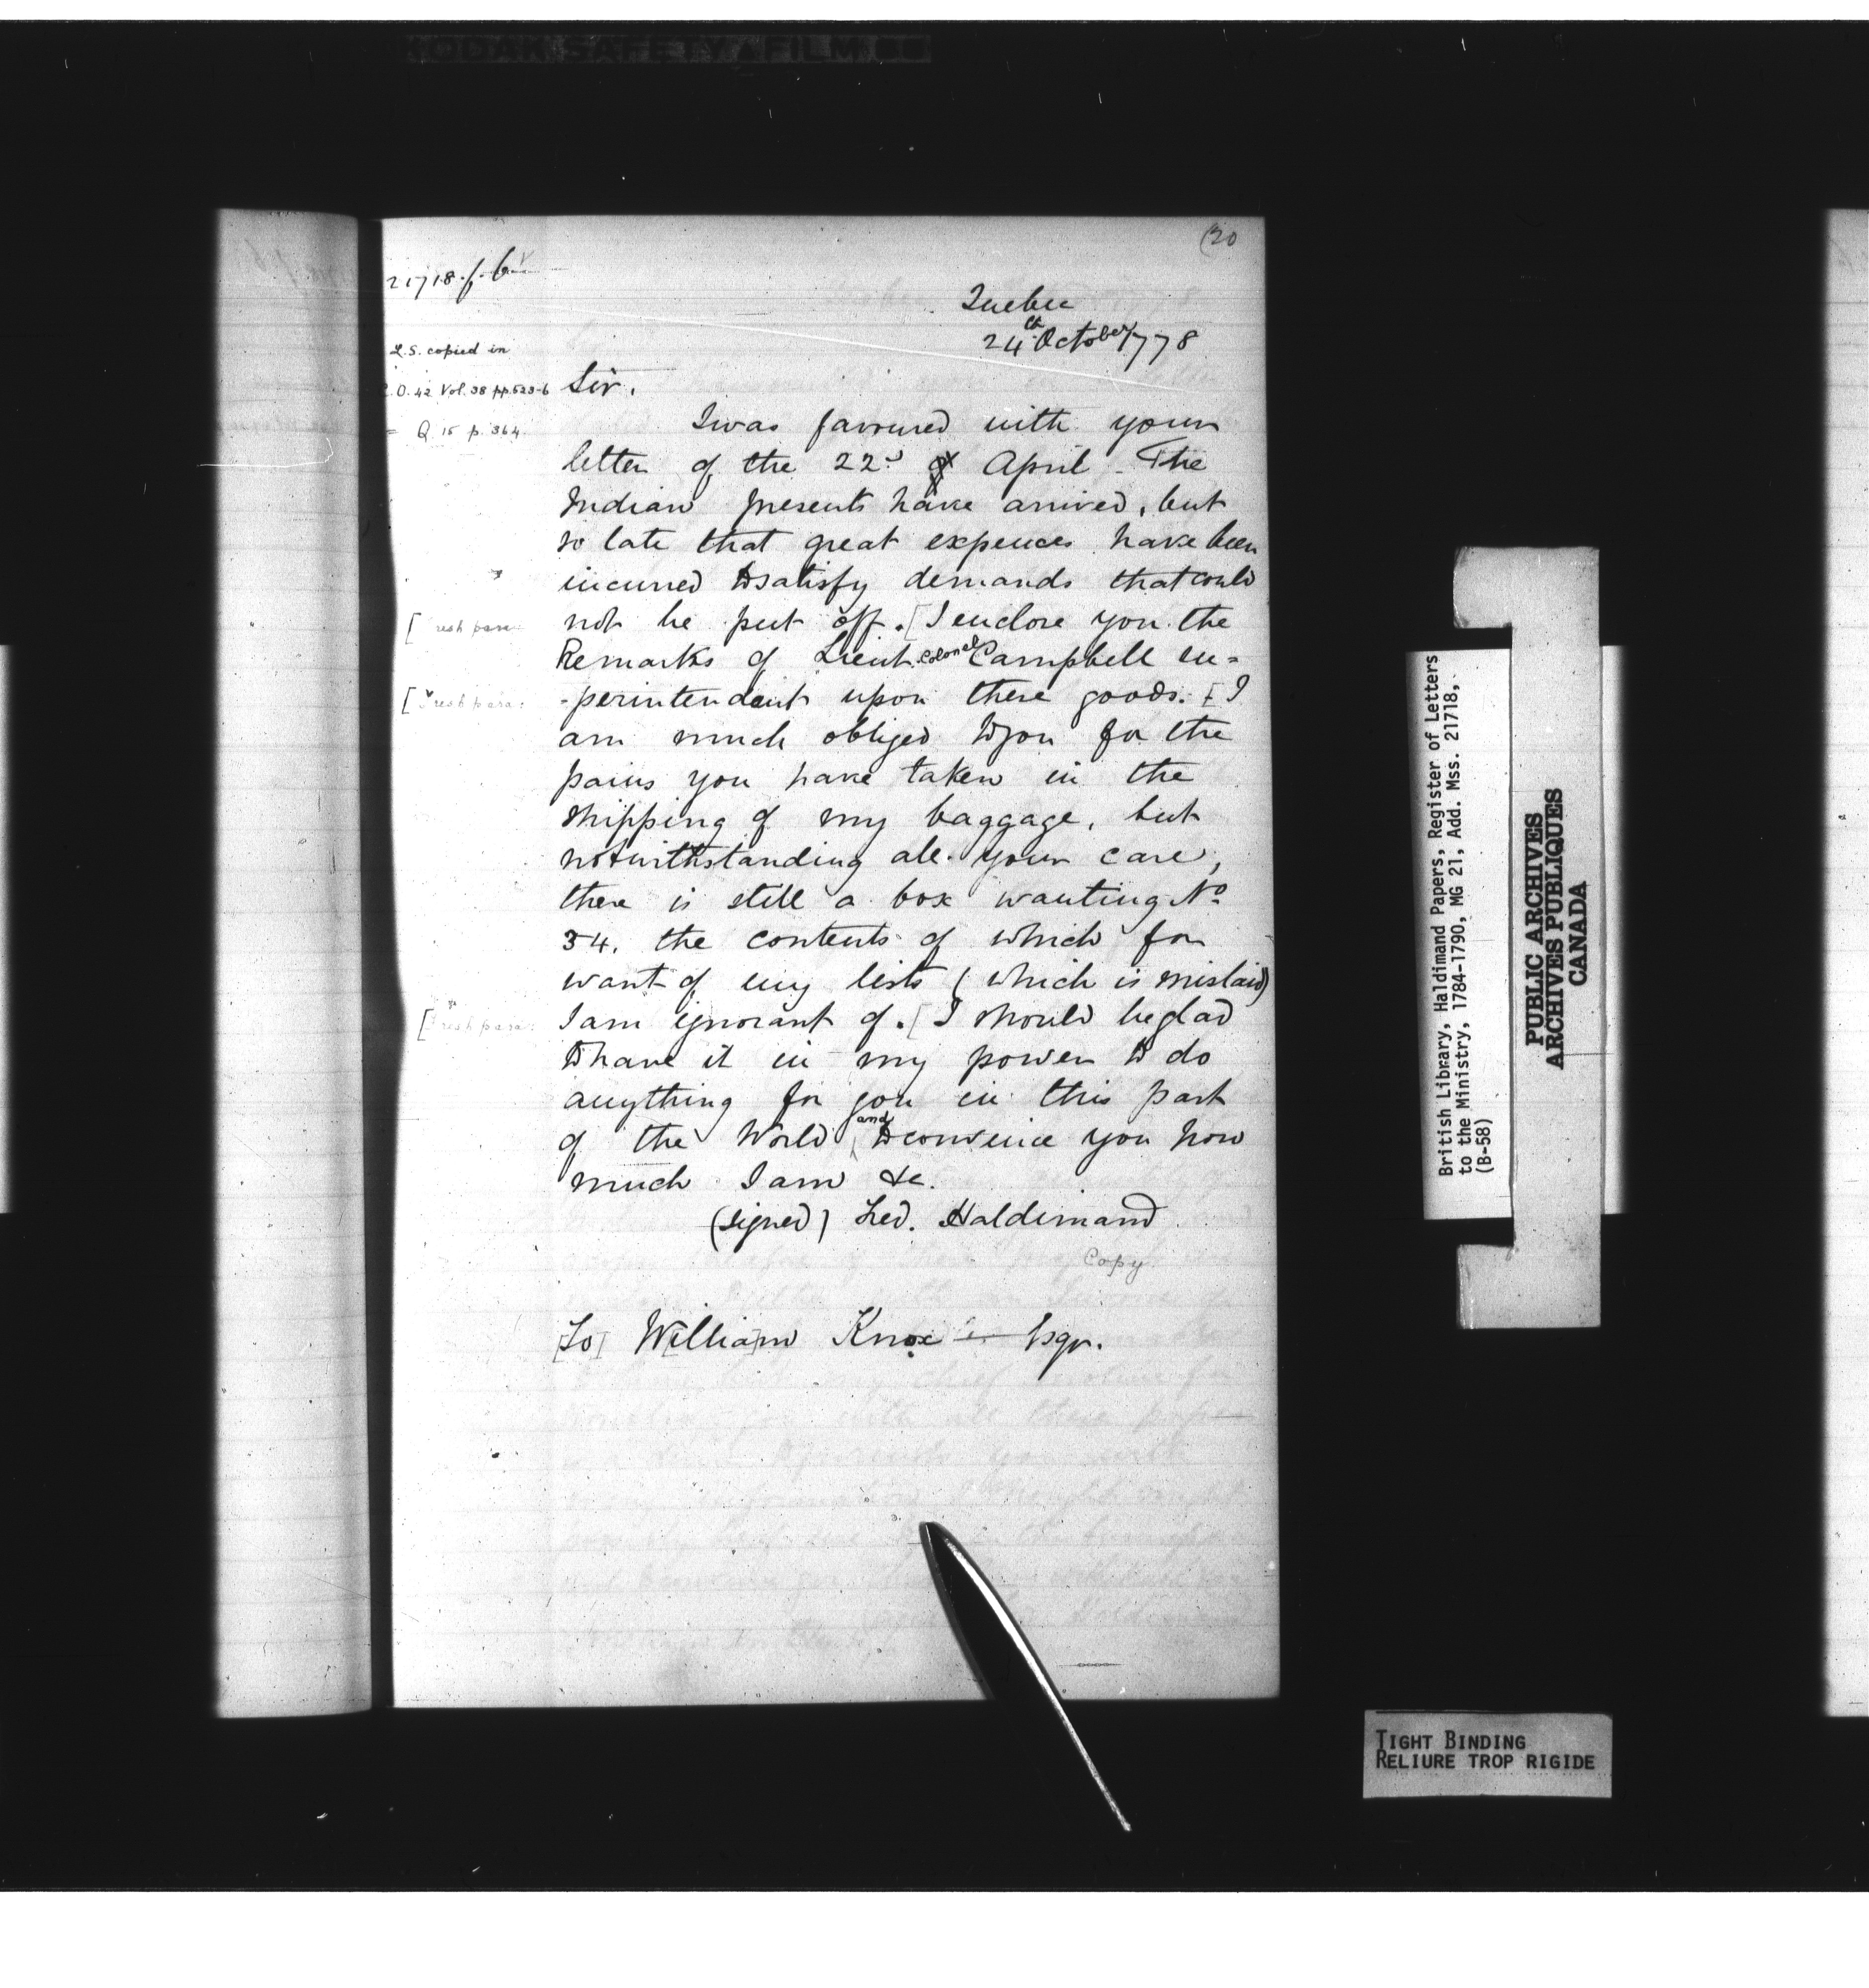 KODAK SAFETY FILM
(20
21718. f. 6v
Quebec
24th October 1778
L.S. copied in
C.O. 42 Vol. 38 pp. 523-6
= Q. 15 p. 364.
Sir,
I was favoured with your
letter of the 22d April - The
Indian presents have arrived, but
so late that great expences have been
incurred to satisfy demands that could
[fresh para:
not be put off. [I enclose you the
Remarks of Lieut. Colonel Campbell su=
[fresh para:
-perintendant upon these goods. [I
am much obliged to you for the
pains you have taken in the
shipping of my baggage, but
notwithstanding all your care,
there is still a box wanting No
34. the contents of which for
want of my lists (which is mislaid)
[fresh para:
I am ignorant of. [I should be glad
to have it in my power to do
anything for you in this part
of the World and to convince you how
much I am &c.
(signed) Fred. Haldimand
Copy
[To] William Knox Esqr.
British Library, Haldimand Papers, Register of Letters
to the Ministry, 1784-1790, MG 21, Add. Mss. 21718,
(B-58)
PUBLIC ARCHIVES
ARCHIVES PUBLIQUES
CANADA
TIGHT BINDING
RELIURE TROP RIGIDE